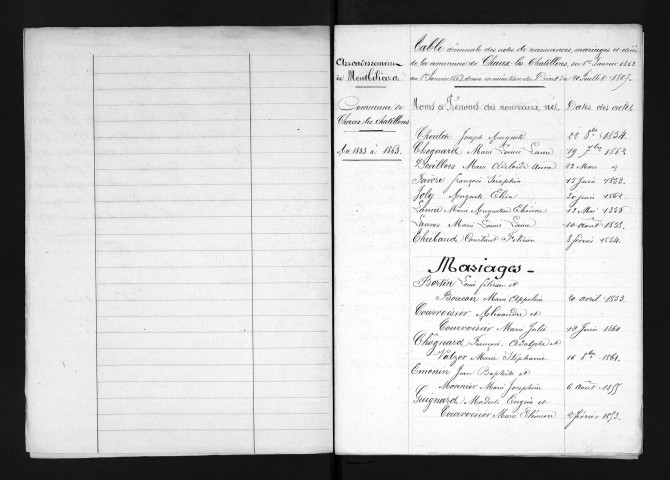 Arrondissement
de Montbéliard
Commune de
Chaux-les-Chatillons
An 1853 à 1863.
Table décennale des actes de naissances, mariages et décès
de la commune de Chaux-les-Chatillons, du 1er Janvier 1853
au 1er Janvier 1863 du 20 Juillet 1807.
Noms et Prénoms des nouveaux nés. Dates des actes
Joseph Auguste 22 1854.
Chognard Marie Louise 19 7bre 1862
Devillers Marie Adelaïde Anna 22 Mars
Faivre François Séraphin 15 Juin 1853.
Joly Auguste Elisa 20 Juin 1862.
Marie Augustine 12 Mai
Marie Louise 10 août 1855.
Thiébaud Constant 8 février 1854.
Mariages
Louis et
Boucon Marie Appoline 20 avril 1853.
Courvoisier Alexandre et
Courvoisier Marie Julie 19 Juin 1860
Chognard François Adolphe et
Marie Stéphanie 16 1861.
Emonin Jean Baptiste et
Monnier Marie Joséphine 6 août
Guignard Eugène et
Courvoisier Marie 2 février 1853.